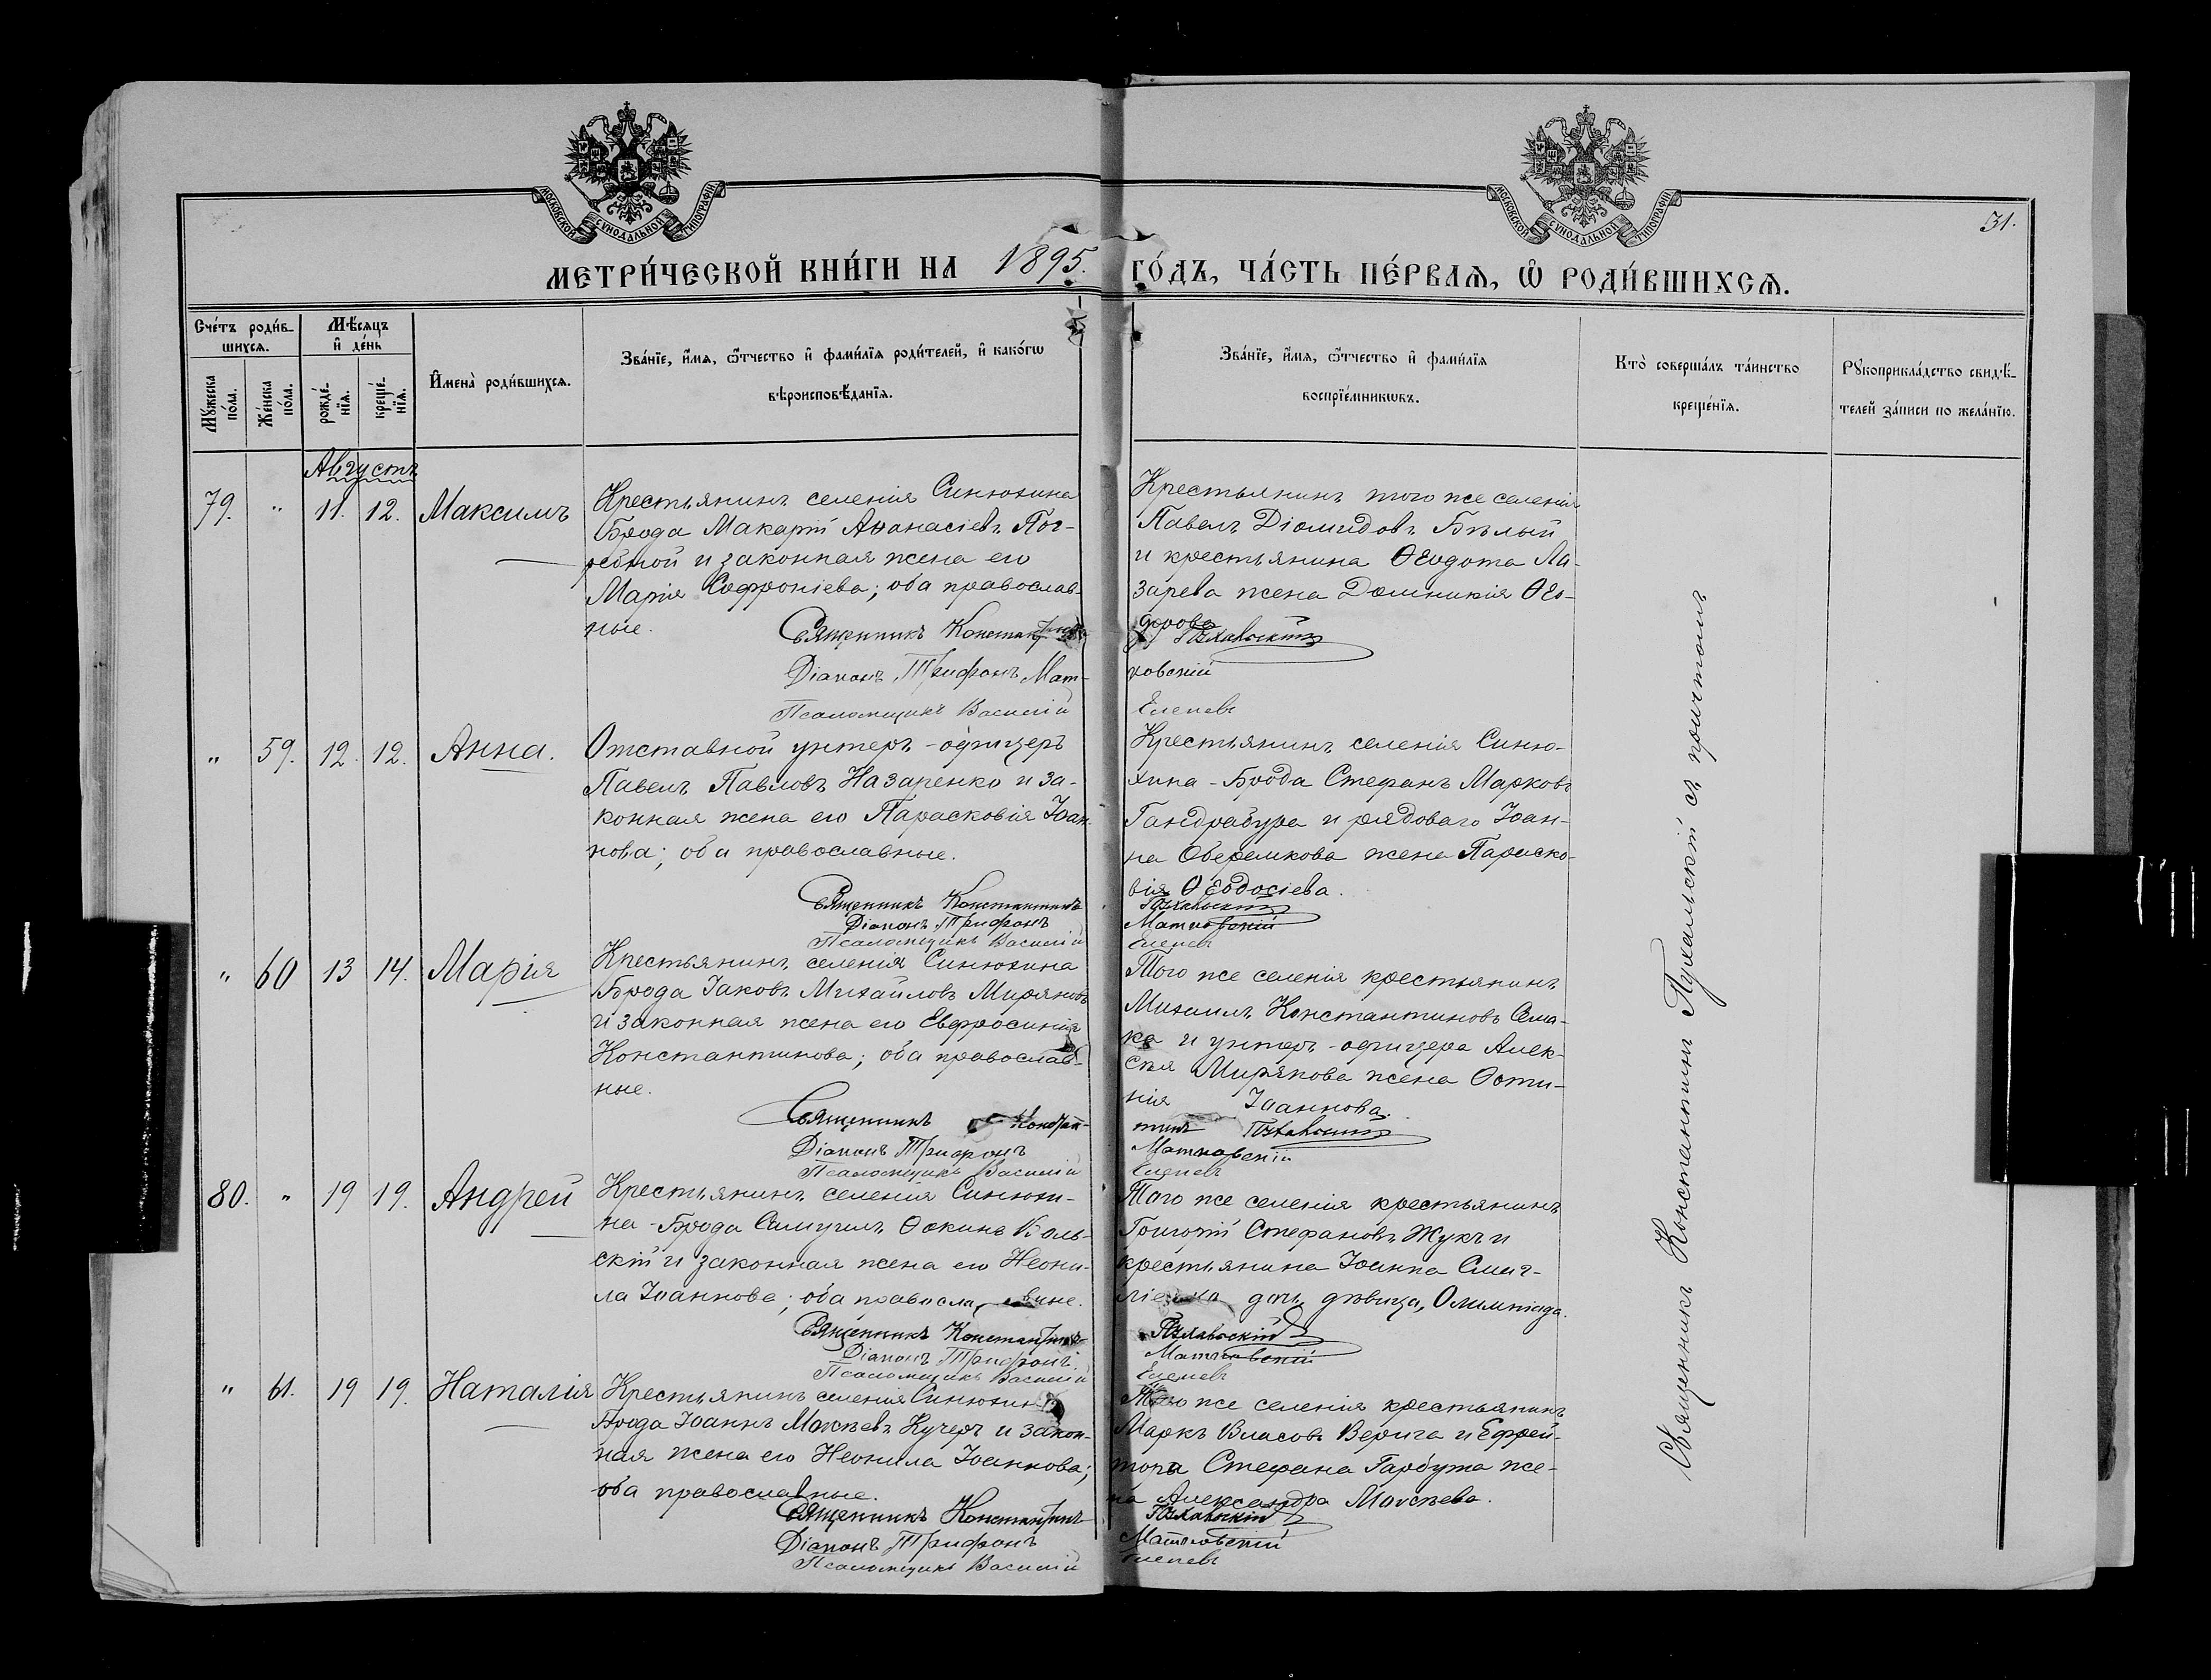 МОСКОВСКОЙ СУНОДАЛЬНОЙ ТИПОГРАФІИ
МОСКОВСКОЙ СУНОДАЛЬНОЙ ТИПОГРАФІИ
31.
МЕТРИ́ЧЕСКОЙ КНИ́ГИ НА 1895. ГО́ДЪ, ЧА́СТЬ ПЕ́РВАѦ, Ѡ҆ РОДИ́ВШИХСѦ.
Сче́тъ роди́в-
шихсѧ.
Мѣ́сѧцъ
и҆ де́нь
Мꙋ́жеска
по́ла.
Же́нска
по́ла.
рожде́-
нїѧ.
креще́-
нїѧ.
И҆мена̀ роди́вшихсѧ.
Зва́нїе, и҆́мѧ, ѻ҆́тчество и҆ фами́лїѧ роди́телей, и҆ како́гѡ
вѣроисповѣ́данїѧ.
Зва́нїе, и҆́мѧ, ѻ҆́тчество и҆ фами́лїѧ
воспрїе́мникѡвъ.
Кто̀ соверша́лъ та́инство
креще́нїѧ.
Рꙋкоприкла́дство свидѣ́-
телей за́писи по жела́нїю.
Августъ
79. " 11. 12. Максимъ
Крестьянинъ селенія Синюхина
Брода Макарій Аѳанасіевъ Пог-
ребной и законная жена его
Марія Софроніева; оба православ-
ные.
Священникъ Константинъ
Діаконъ Трифонъ Мат-
Псаломщикъ Василій
Крестьянинъ того же селенія
Павелъ Діомидовъ Бѣлый
и крестьянина Ѳеодота Ла-
зарева жена Домникія Ѳео-
дорова
Пухальскій
ковскій
" 59. 12. 12. Анна.
Отставной унтеръ-офицеръ
Павелъ Павловъ Назаренко и за-
конная жена его Парасковія Іоан-
нова; оба православные.
Священникъ Константинъ
Діаконъ Трифонъ
Псаломщикъ Василій
Крестьянинъ селенія Синю-
хина-Брода Стефанъ Марковъ
Гандрабура и рядоваго Іоан-
на Оберемкова жена Параско-
вія Ѳеодосіева.
Пухальскій
Матковскій
" 60 13 14. Марія
Крестьянинъ селенія Синюхина
Брода Іаковъ Михайловъ Миряновъ
и законная жена его Евфросинія
Константинова; оба православ-
ные.
Священникъ Констан-
Діаконъ Трифонъ
Псаломщикъ Василій
Того же селенія крестьянинъ
Михаилъ Константиновъ Сема-
ка и унтеръ-офицера Алек-
сѣя Мирянова жена
нія Іоаннова.
тинъ Пухальскій
Матковскій
80. " 19 19. Андрей
Крестьянинъ селенія Синюхи-
на-Брода Самуилъ Ѳокинъ Коль-
скій и законная жена его Неони-
ла Іоаннова; оба православные.
Священникъ Константинъ
Діаконъ Трифонъ
Псаломщикъ Василій
Того же селенія крестьянинъ
Григорій Стефановъ Жукъ и
крестьянина Іоанна
дочь дѣвица, Олимпіада.
Пухальскій
Матковскій
" 61. 19 19. Наталія
Крестьянинъ селенія Синюхина
Брода Іоаннъ Моисеевъ Кучеръ и закон-
ная жена его Неонила Іоаннова;
оба православные.
Священникъ Константинъ
Діаконъ Трифонъ
Псаломщикъ Василій
Того же селенія крестьянинъ
Маркъ Власовъ Верига и Ефрей-
тора Стефана Гарбуза же-
на Александра Моисѣева.
Пухальскій
Матковскій
Священникъ Константинъ Пухальскій съ причтомъ